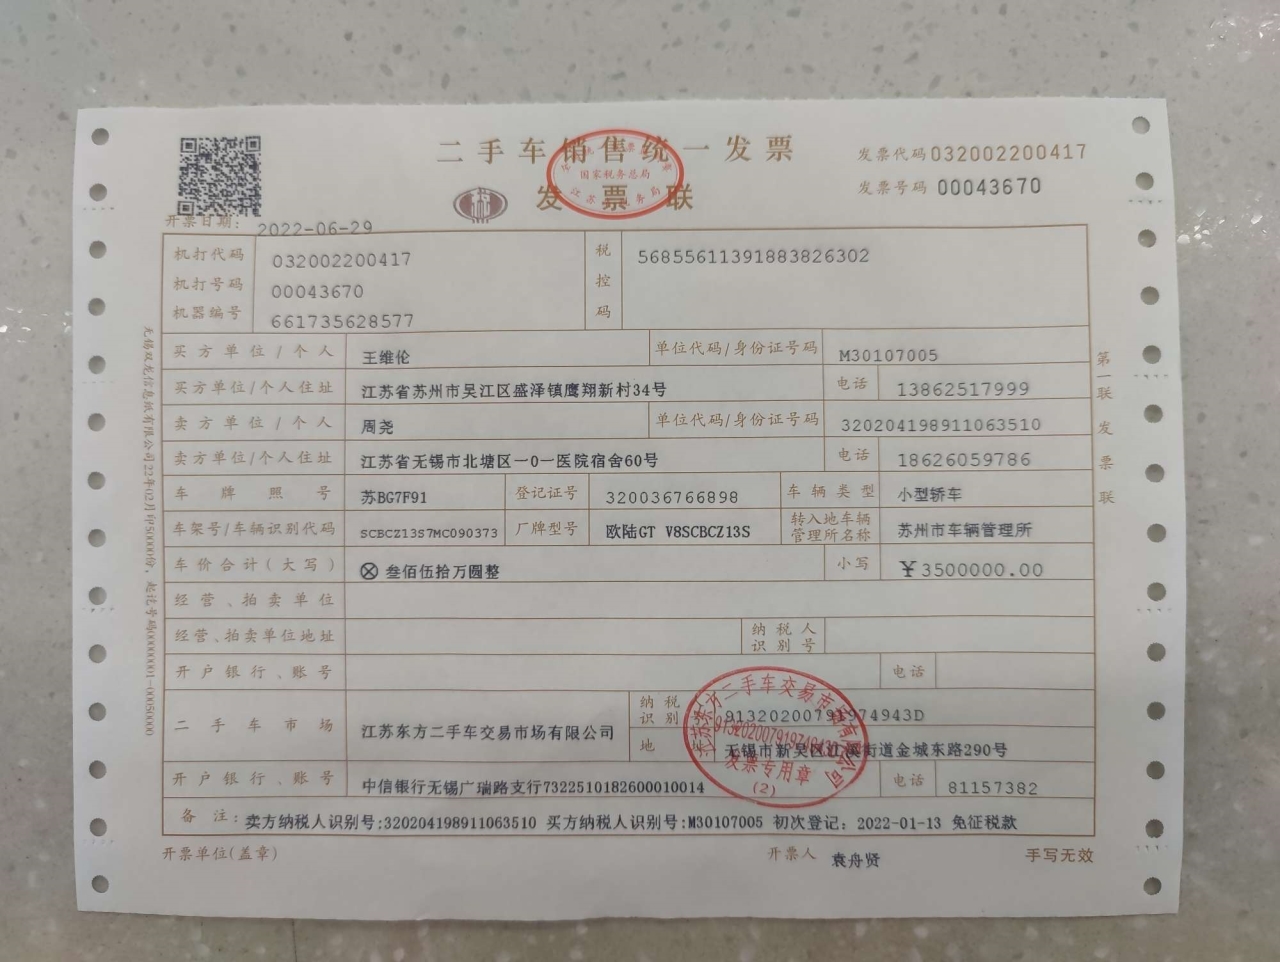 二手车销售统一发票
发票联
国家税务总局
发票代码 032002200417
发票号码 00043670
开票日期: 2022-06-29
机打代码 032002200417
机打号码 00043670
机器编号 661735628577
税控码 56855611391883826302
买方单位/个人 王维伦 单位代码/身份证号码 M30107005
买方单位/个人住址 江苏省苏州市吴江区盛泽镇鹰翔新村34号 电话 13862517999
卖方单位/个人 周尧 单位代码/身份证号码 320204198911063510
卖方单位/个人住址 江苏省无锡市北塘区一0一医院宿舍60号 电话 18626059786
车牌照号 苏BG7F91 登记证号 320036766898 车辆类型 小型轿车
车架号/车辆识别代码 SCBCZ13S7MC090373 厂牌型号 欧陆GT V8SCBCZ13S 转入地车辆管理所名称 苏州市车辆管理所
车价合计(大写) ⊗ 叁佰伍拾万圆整 小写 ¥3500000.00
经营、拍卖单位
经营、拍卖单位地址 纳税人识别号
开户银行、账号 电话
二手车市场 江苏东方二手车交易市场有限公司 纳税识别 91320200791974943D
地 无锡市新吴区江溪街道金城东路290号
开户银行、账号 中信银行无锡广瑞路支行7322510182600010014 电话 81157382
备注: 卖方纳税人识别号:320204198911063510 买方纳税人识别号:M30107005 初次登记: 2022-01-13 免征税款
开票单位(盖章) 开票人 袁舟贤 手写无效
第一联 发票联
江苏东方二手车交易市场有限公司
91320200791974943D
发票专用章
(2)